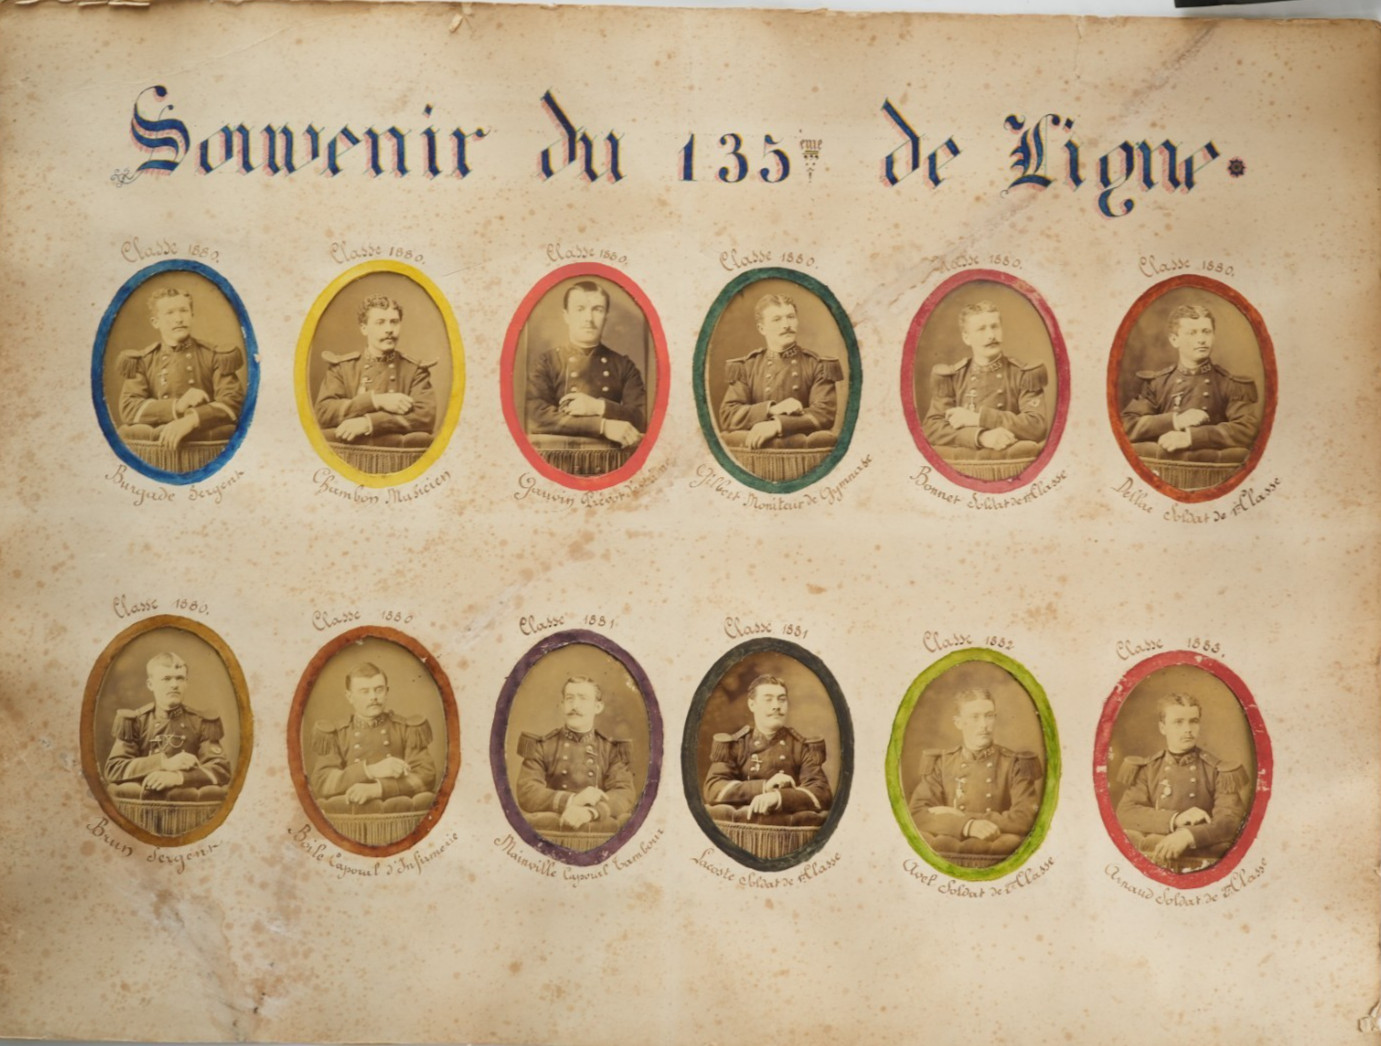 Souvenir du 135ème de Ligne.
Classe 1880.
Burgade Sergent
Classe 1880.
Chambon Musicien
Classe 1880.
Gauvin Prévôt
Classe 1880.
Gilbert Moniteur de Gymnase
Classe 1880.
Bonnet Soldat de Classe
Classe 1880.
Soldat de 1e Classe
Classe 1880.
Brun Sergent
Classe 1880
Caporal d'Infirmerie
Classe 1881.
Mainville Caporal Tambour
Classe 1881
Lacoste Soldat de Classe
Classe 1882
Soldat de Classe
Classe 1883.
Arnaud Soldat de 2e Classe